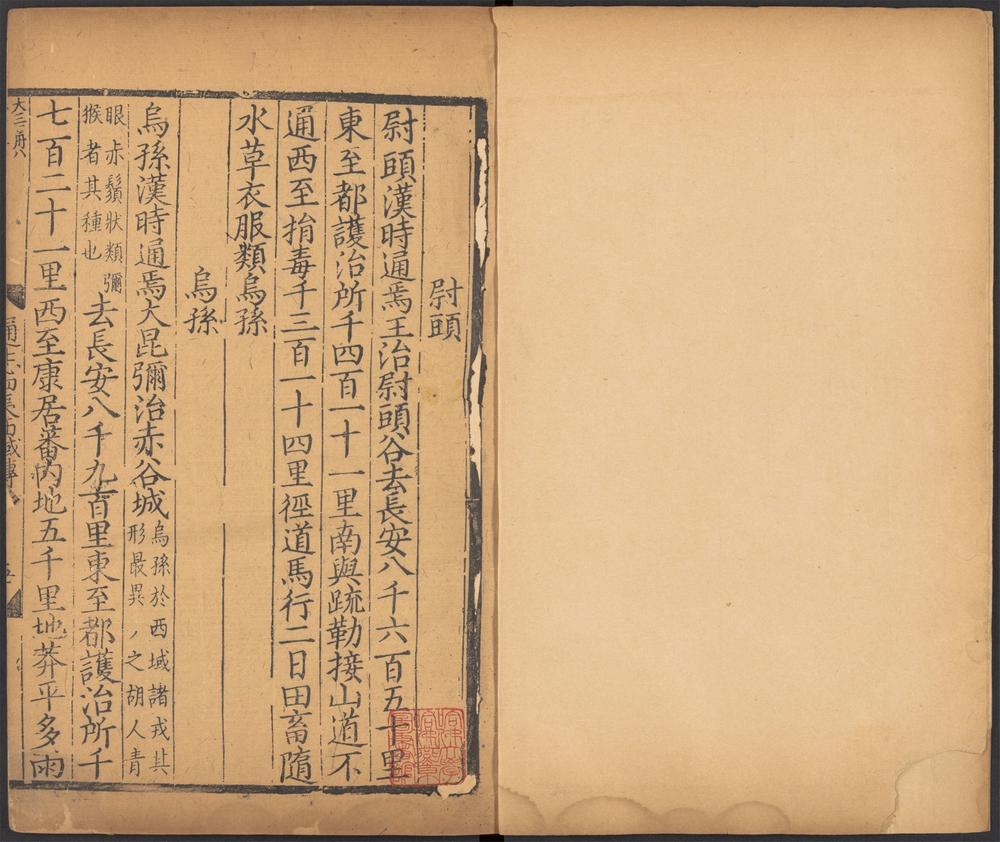 尉頭
尉頭漢時通焉王治尉頭谷去長安八千六百五十里
東至都護治所千四百一十一里南與疏勒接山道不
通西至捐毒千三百一十四里徑道馬行二日田畜隨
水草衣服類烏孫
烏孫
烏孫漢時通焉大昆彌治赤谷城
烏孫於西域諸戎其
形最異
之胡人青
眼赤鬚狀類彌
猴者其種也
去長安八千九百里東至都護治所千
七百二十一里西至康居蕃內地五千里地莽平多雨